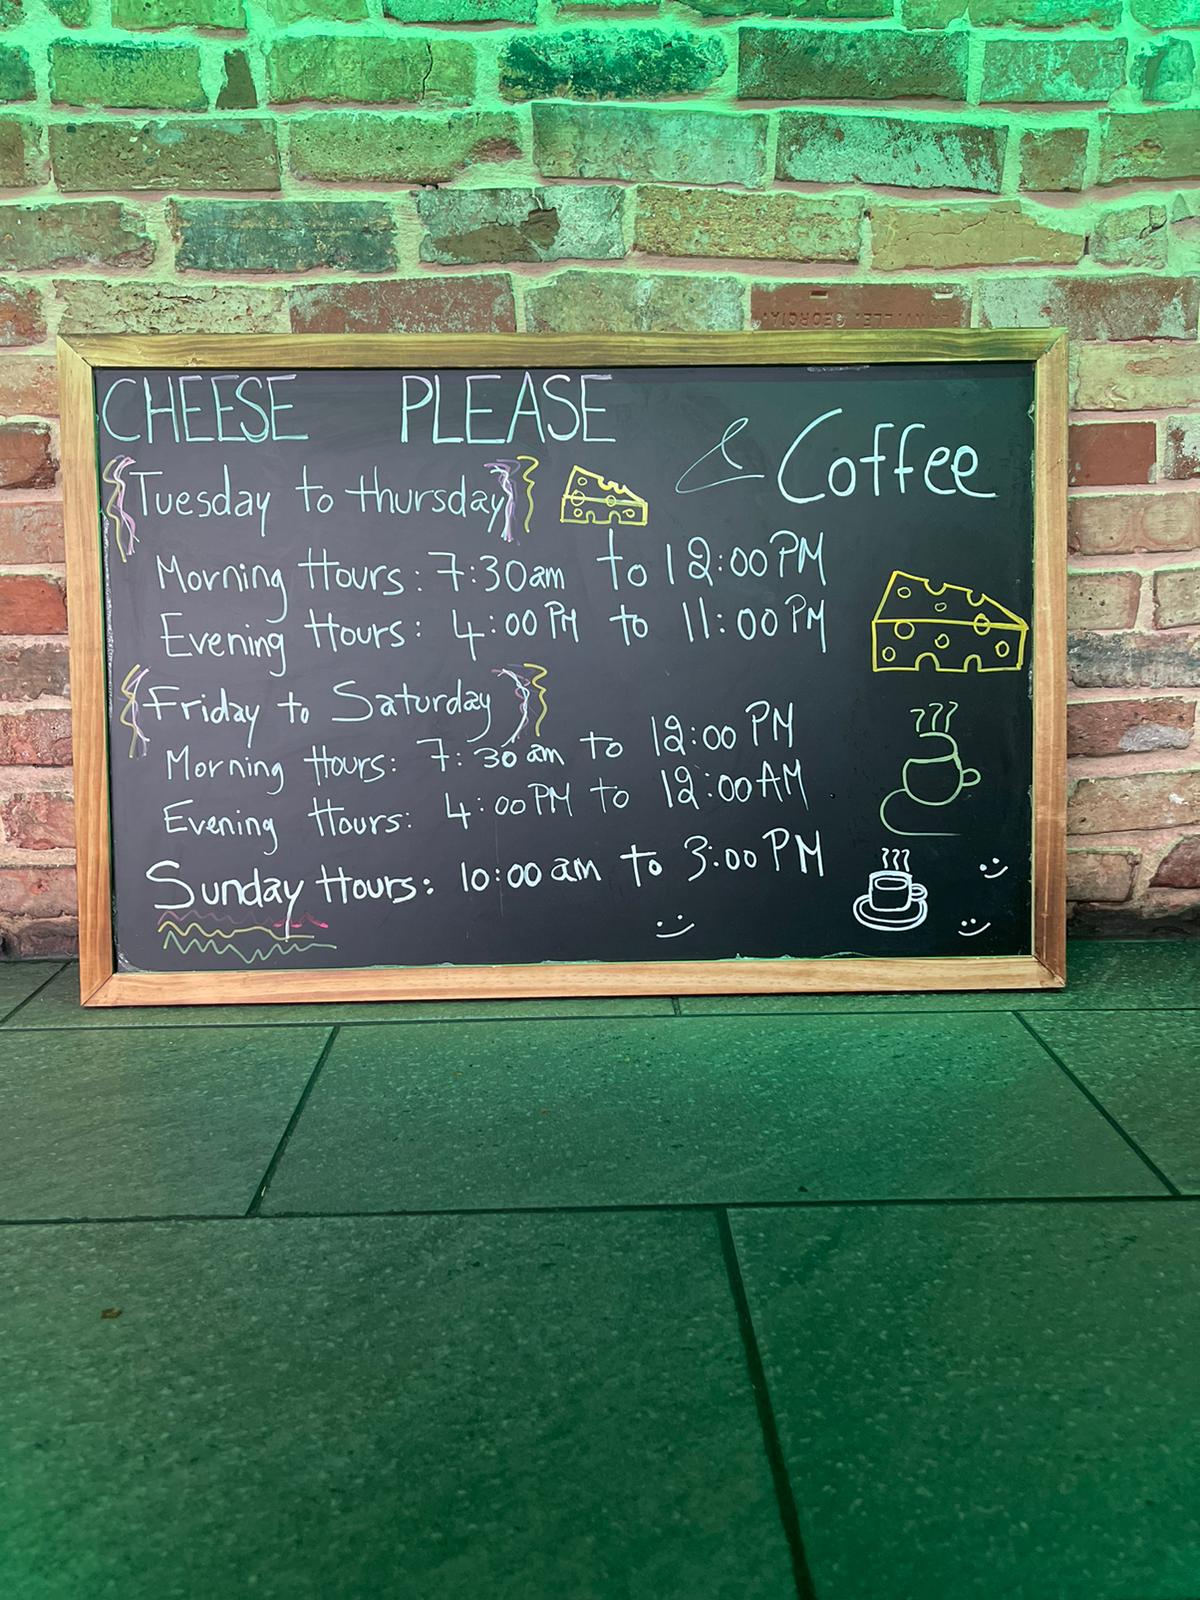 CHEESE PLEASE
& Coffee
Tuesday to thursday
Morning Hours: 7:30am to 12:00 PM
Evening Hours: 4:00 PM to 11:00 PM
Friday to Saturday
Morning Hours: 7:30 am to 12:00 PM
Evening Hours: 4:00 PM to 12:00 AM
Sunday Hours: 10:00 am to 3:00 PM